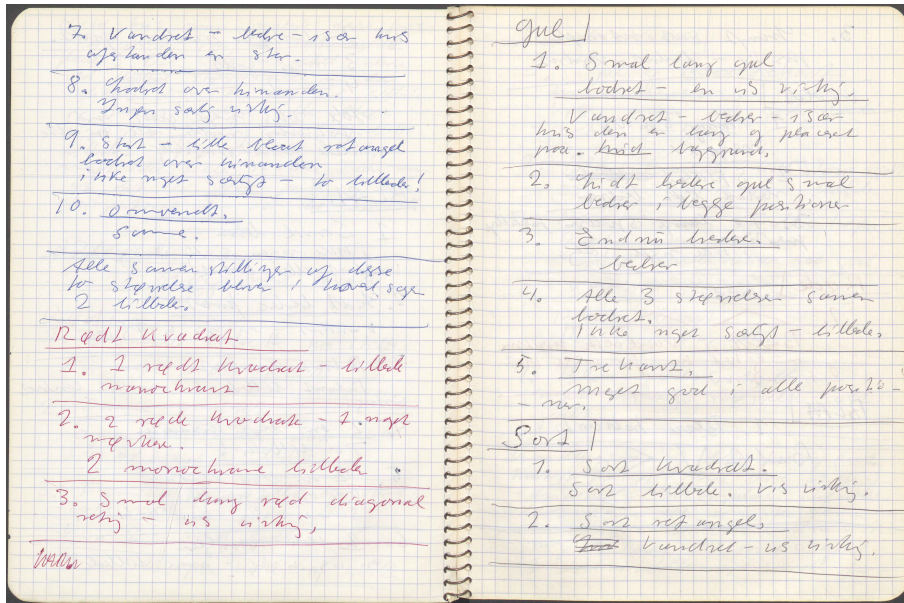 7. Vandret – bedre – især hvis
afstanden er stor.
8. Lodret over hinanden.
Ingen særlig virkg.
9. Stort – lille blåt retangel
lodret over hinanden
ikke nget særligt – to billeder!
10. Omvendt.
Samme.
Alle sammenstillinger af disse
to størrelser bliver i hovedsagen
2 billeder.
Rødt Kvadrat
1. 1 rødt kvadrat – billede
monochromt –
2. 2 røde kvadrater – 1. noget
mørkere.
2 monochrome billeder.
3. Smal lang rød diagonal
retng – vis virkng.
Gul
1. Smal lang gul
lodret – en vis virkng.
Vandret – bedre – især
hvis den er lang og placeret
paa hvid baggrund.
2. Lidt bredere gul smal
bedre i begge positioner
3. Endnu bredere.
bedre
4. Alle 3 størrelser sammen
lodret.
ikke nget særligt – billede.
5. Trekant.
meget god i alle positio-
-ner.
Sort
1. Sort kvadrat.
Sort billede. vis virkng.
2. Sort retangel.
Vandret – vis virkng.